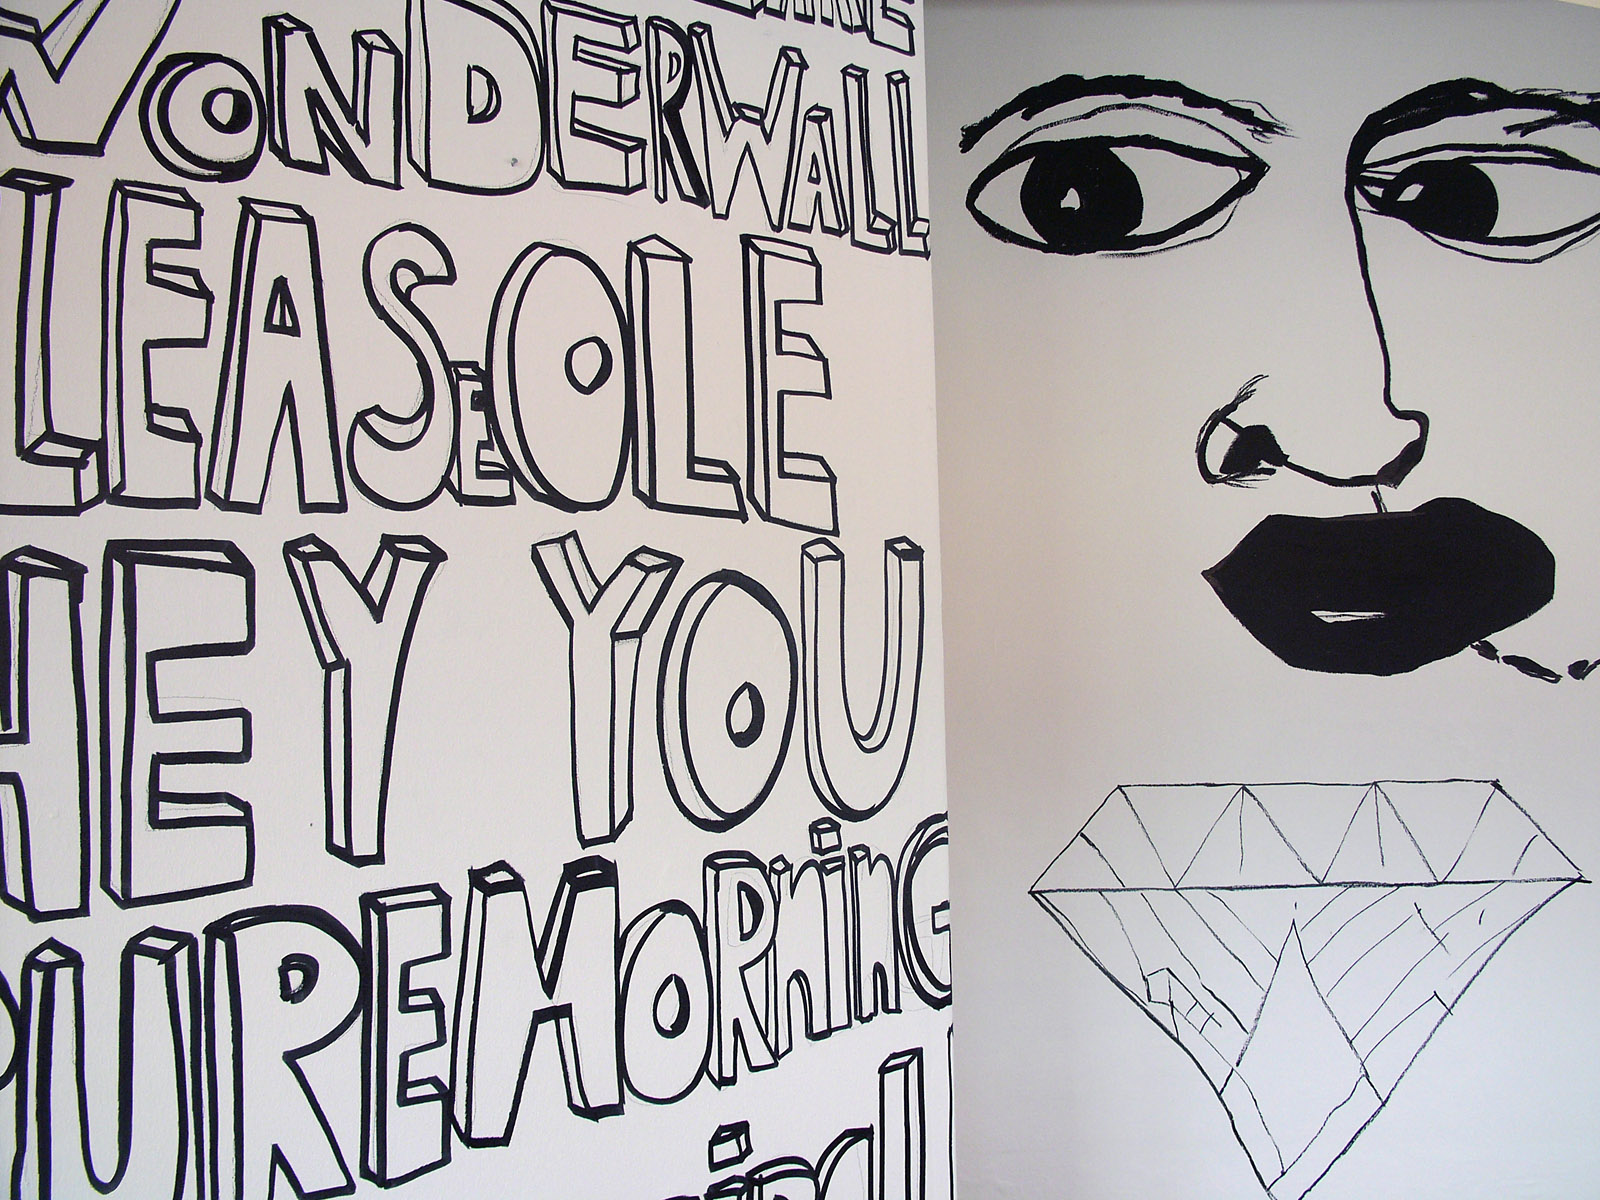 WoNDERWALL
LEASEOLE
HEY YOU
PUREMORniNG